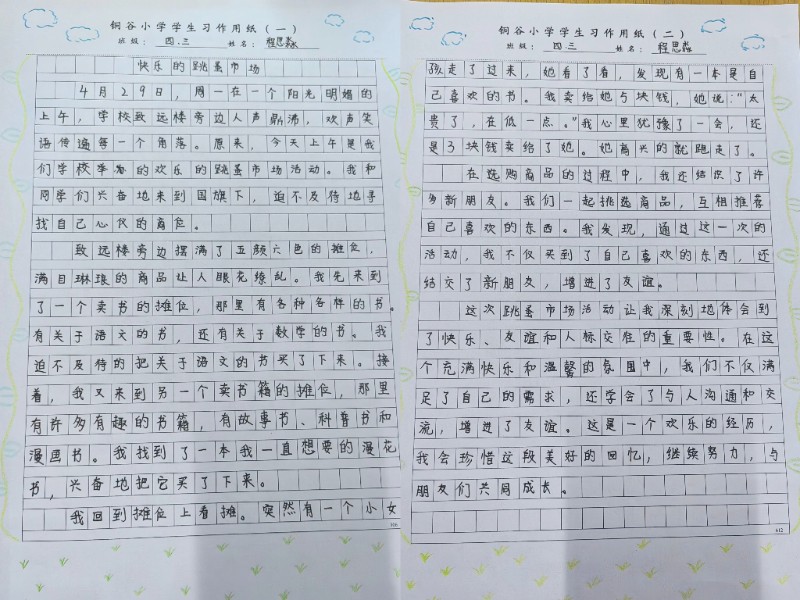 铜谷小学学生习作用纸（一）
班级：四.三 姓名：程思淼
快乐的跳蚤市场
4月29日，周一在一个阳光明媚的
上午，学校致远楼旁边人声鼎沸，欢声笑
语传遍每一个角落。原来，今天上午是我
们学校举办的欢乐的跳蚤市场活动。我和
同学们兴奋地来到国旗下，迫不及待地寻
找自己心仪的商位。
致远楼旁边摆满了五颜六色的摊位，
满目琳琅的商品让人眼花缭乱。我先来到
了一个卖书的摊位，那里有各种各样的书。
有关于语文的书，还有关于数学的书。我
迫不及待的把关于语文的书买了下来。接
着，我又来到另一个卖书籍的摊位，那里
有许多有趣的书籍，有故事书、科普书和
漫画书。我找到了一本我一直想要的漫花
书，兴奋地把它买了下来。
我回到摊位上看摊。突然有一个小女
铜谷小学学生习作用纸（二）
班级：四三 姓名：程思淼
孩走了过来，她看了看，发现有一本是自
己喜欢的书。我卖给她5块钱，她说：“太
贵了，在低一点。”我心里犹豫了一会，还
是3块钱卖给了她。她高兴的就跑走了。
在选购商品的过程中，我还结识了许
多新朋友。我们一起挑选商品，互相推荐
自己喜欢的东西。我发现，通过这一次的
活动，我不仅买到了自己喜欢的东西，还
结交了新朋友，增进了友谊。
这次跳蚤市场活动让我深刻地体会到
了快乐、友谊和人标交往的重要性。在这
个充满快乐和温馨的氛围中，我们不仅满
足了自己的需求，还学会了与人沟通和交
流，增进了友谊。这是一个欢乐的经历，
我会珍惜这段美好的回忆，继续努力，与
朋友们共同成长。